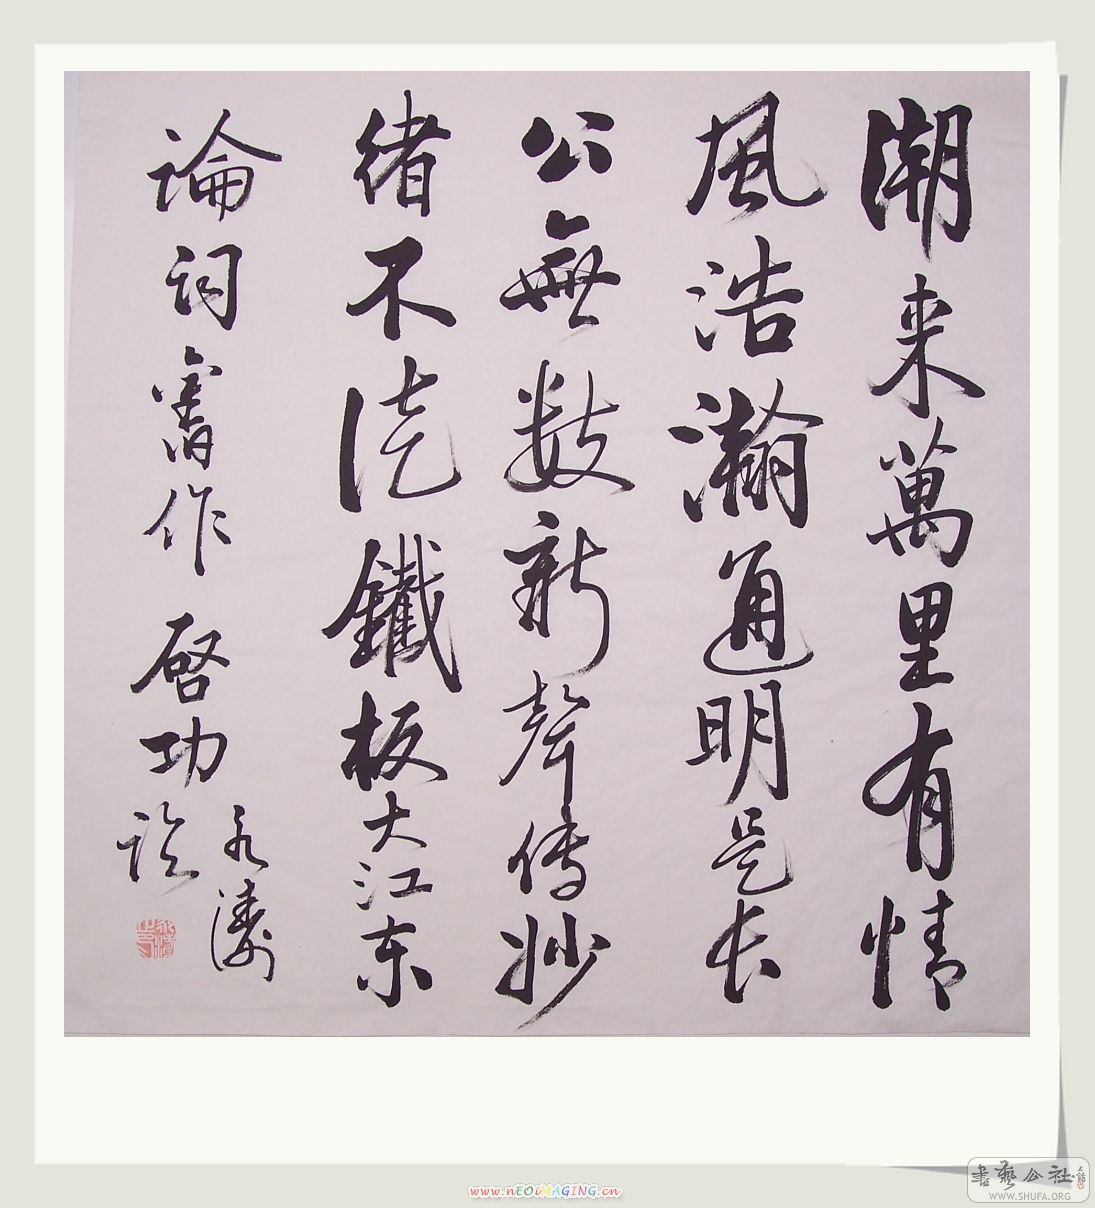 潮来萬里有情
風浩瀚通明是长
公無数新聲传妙
緒不徒鐵板大江东
論词舊作 啓功
永濤
www.nEOiMAGING.cn
書藝公社
WWW.SHUFA.ORG